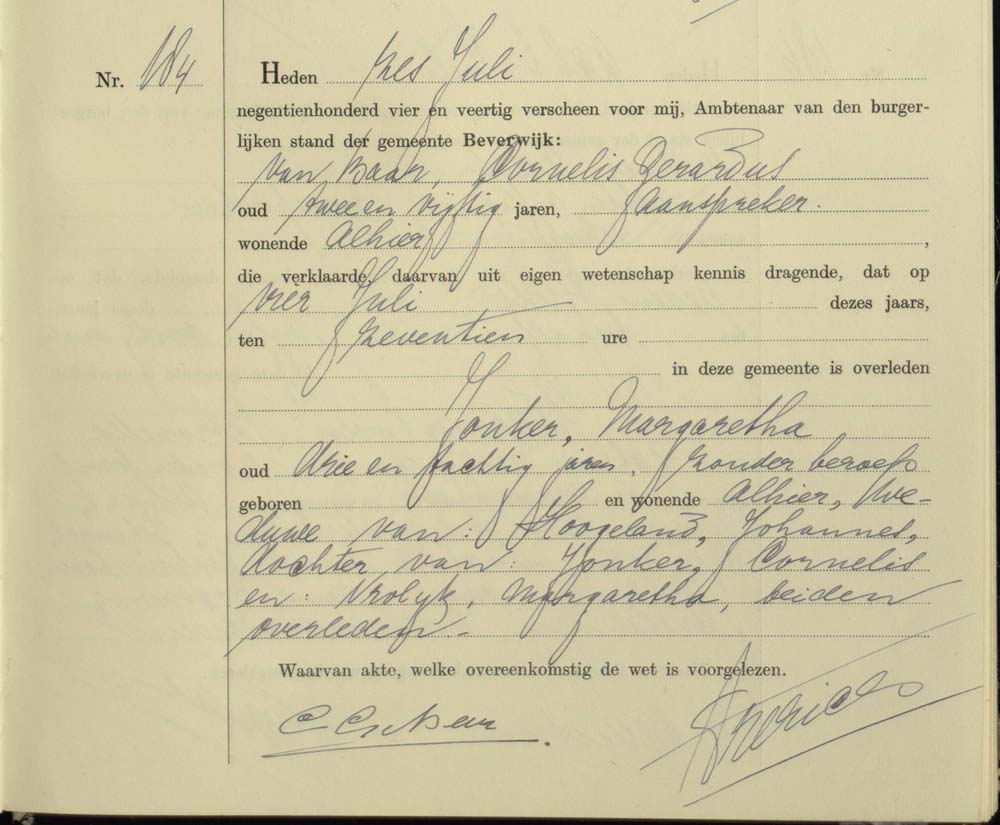 Nr. 184
Heden zes Juli
negentienhonderd vier en veertig verscheen voor mij, Ambtenaar van den burger-
lijken stand der gemeente Beverwijk:
van Baar, Cornelis Gerardus
oud twee en vijftig jaren, aanspreker.
wonende alhier,
die verklaarde, daarvan uit eigen wetenschap kennis dragende, dat op
vier Juli dezes jaars,
ten zeventien ure
in deze gemeente is overleden
Jonker, Margaretha
oud drie en tachtig jaren, zonder beroep
geboren en wonende alhier, We-
duwe van: Hoogeland, Johannes,
dochter van: Jonker, Cornelis
en: Vrolyk, Margaretha, beiden
overleden.-
Waarvan akte, welke overeenkomstig de wet is voorgelezen.